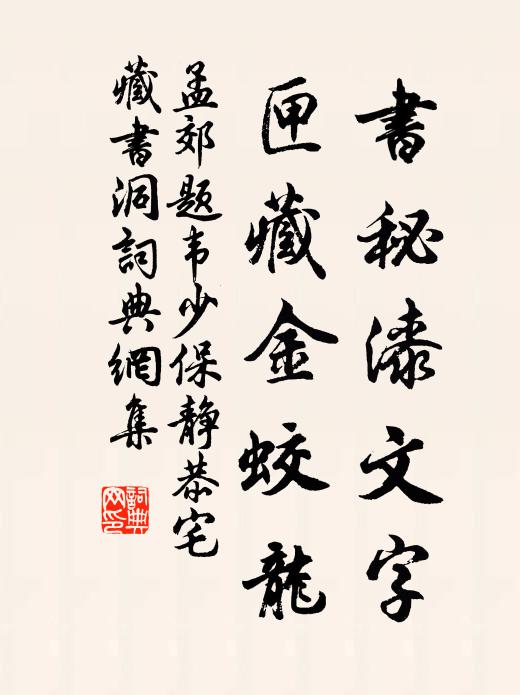 書秘漆文字
匣藏金蛟龍
孟郊題韦少保静恭宅
藏書洞詞典網集
詞典
网印